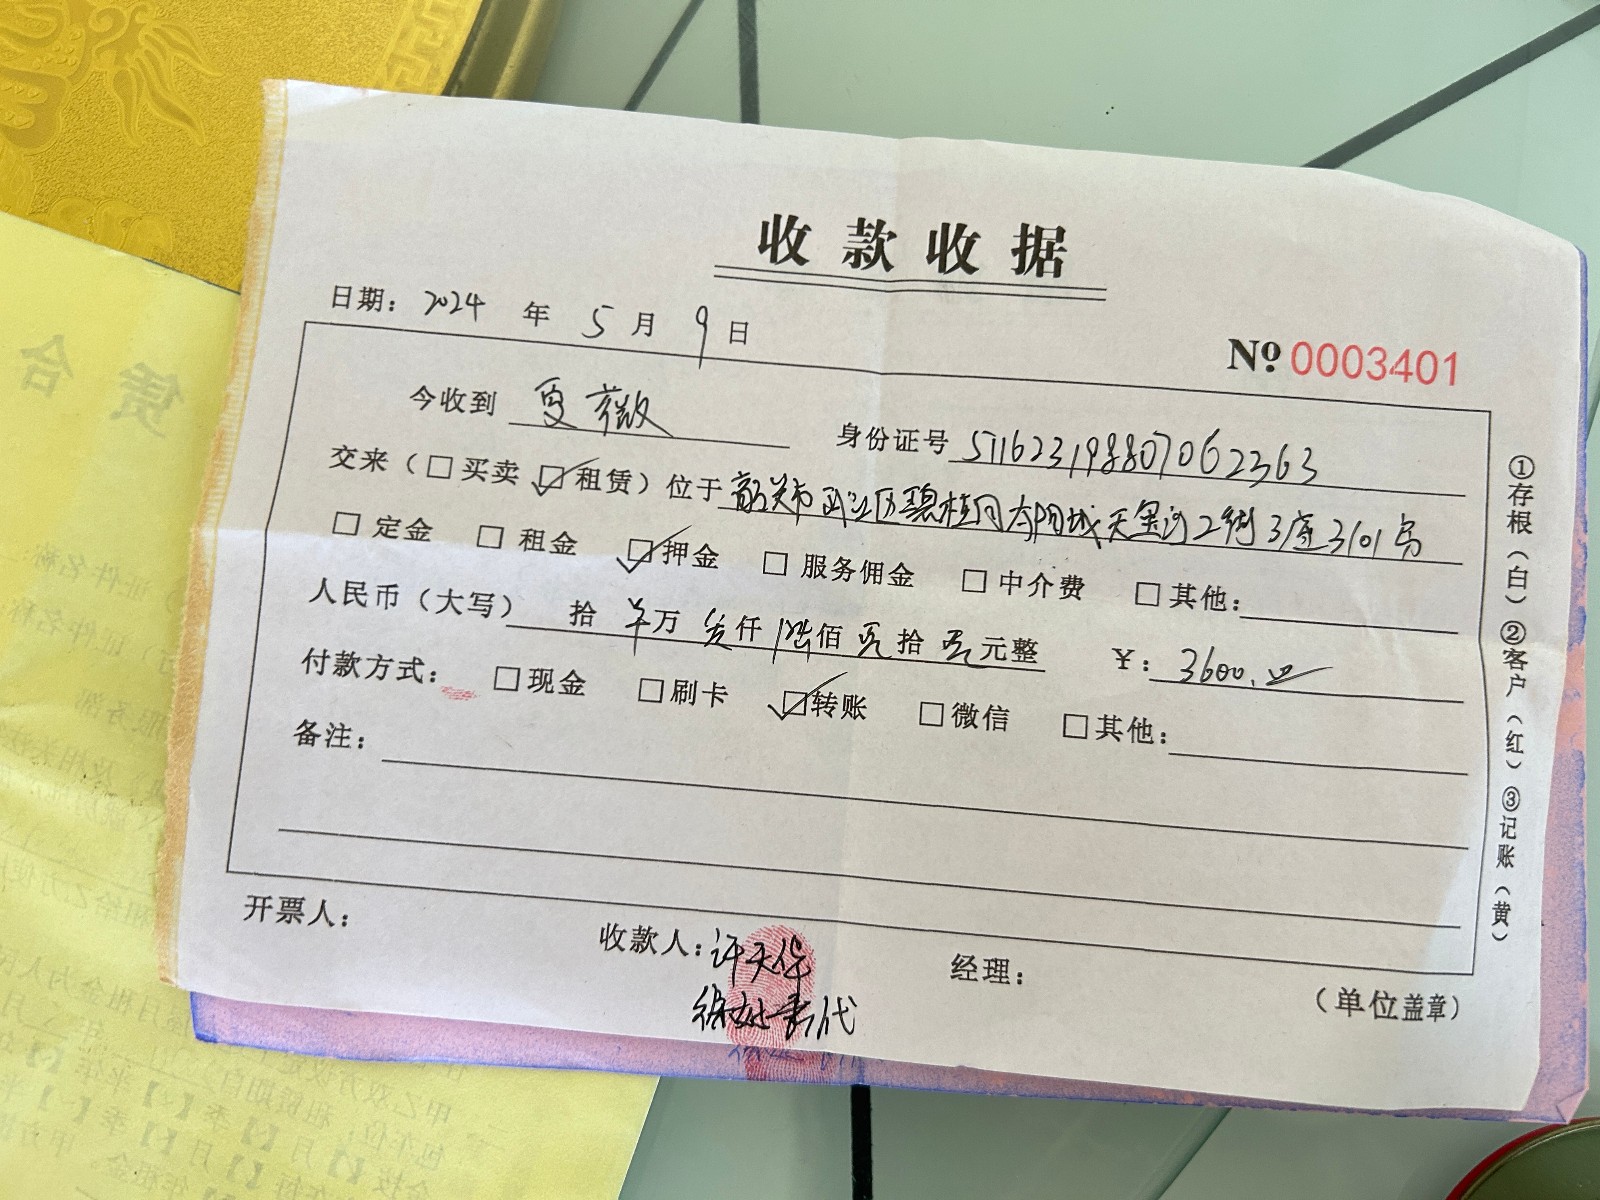 收款收据
日期: 2024 年 5 月 9 日
№ 0003401
今收到 夏薇 身份证号 511623198807062363
交来（□买卖 ☑租赁）位于 韶关市武江区碧桂园太阳城天玺湾2街3座3101号
□ 定金 □ 租金 ☑ 押金 □ 服务佣金 □ 中介费 □ 其他:
人民币（大写） 拾 万 仟 陆佰 零拾 零元整 ¥: 3600.00
付款方式: □现金 □刷卡 ☑转账 □微信 □其他:
备注:
开票人: 收款人: 许天华 经理: （单位盖章）
代
①存根（白）②客户（红）③记账（黄）
赁 合